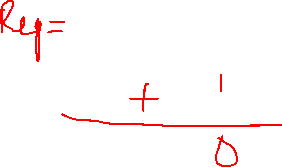 Req=
+ 1
0